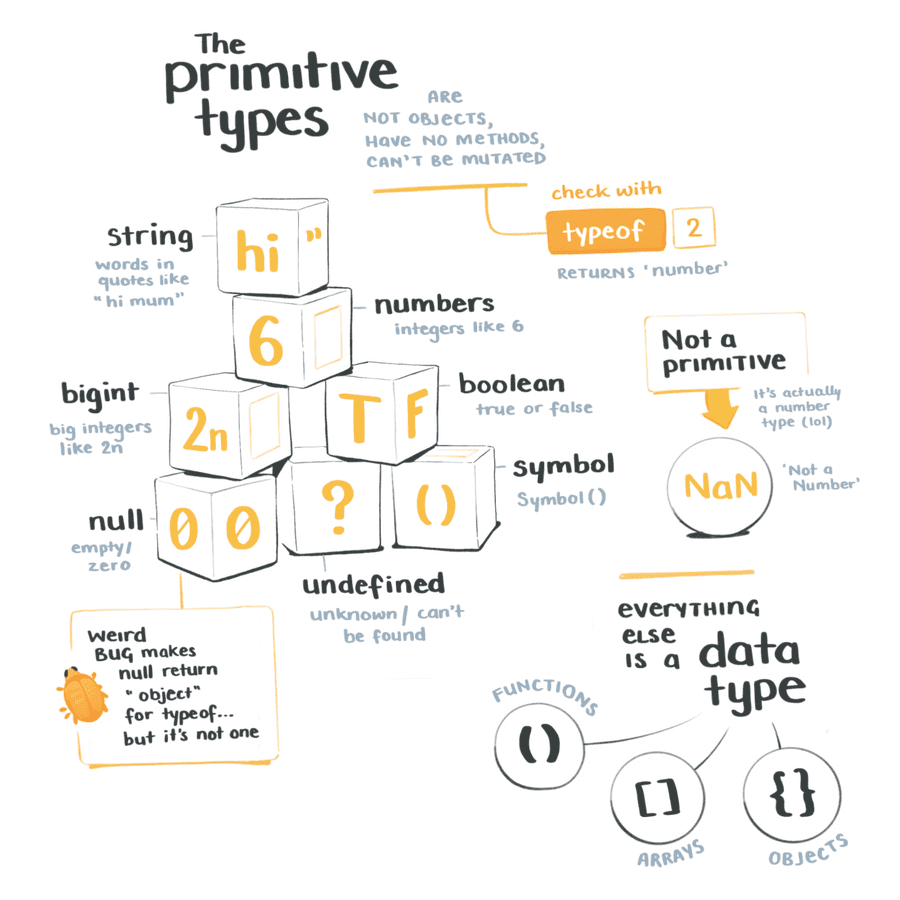 The
primitive
types
ARE
NOT OBJECTS,
HAVE NO METHODS,
CAN'T BE MUTATED
check with
typeof 2
RETURNS 'number'
string
words in
quotes like
"hi mum"
hi "
numbers
integers like 6
6
bigint
big integers
like 2n
2n
T F
boolean
true or false
symbol
Symbol()
()
null
empty/
zero
0 0
?
undefined
unknown/ can't
be found
weird
BUG makes
null return
"object"
for typeof...
but it's not one
Not a
primitive
It's actually
a number
type (lol)
NaN
'Not a
Number'
EVERYTHING
ELSE
IS a data
type
FUNCTIONS
()
[]
ARRAYS
{}
OBJECTS